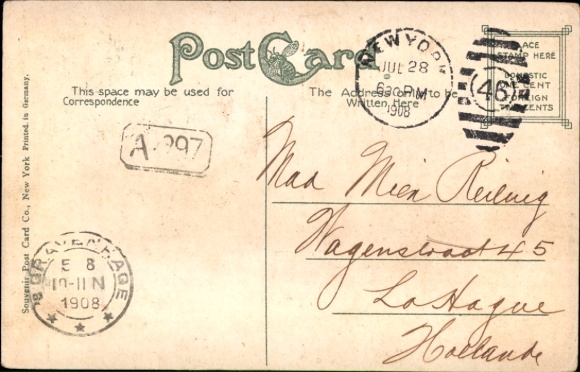 POST CARD
This space may be used for
Correspondence
The Address only to be
Written Here
PLACE
STAMP HERE
DOMESTIC
ONE CENT
FOREIGN
TWO CENTS
NEW YORK
JUL 28
6 30 PM
1908
46
A 997
Mad Mien
Wagenstraat 45
La Hague
Hollande
'S GRAVENHAGE
E 8
10-11 N
1908
Souvenir Post Card Co., New York Printed in Germany.